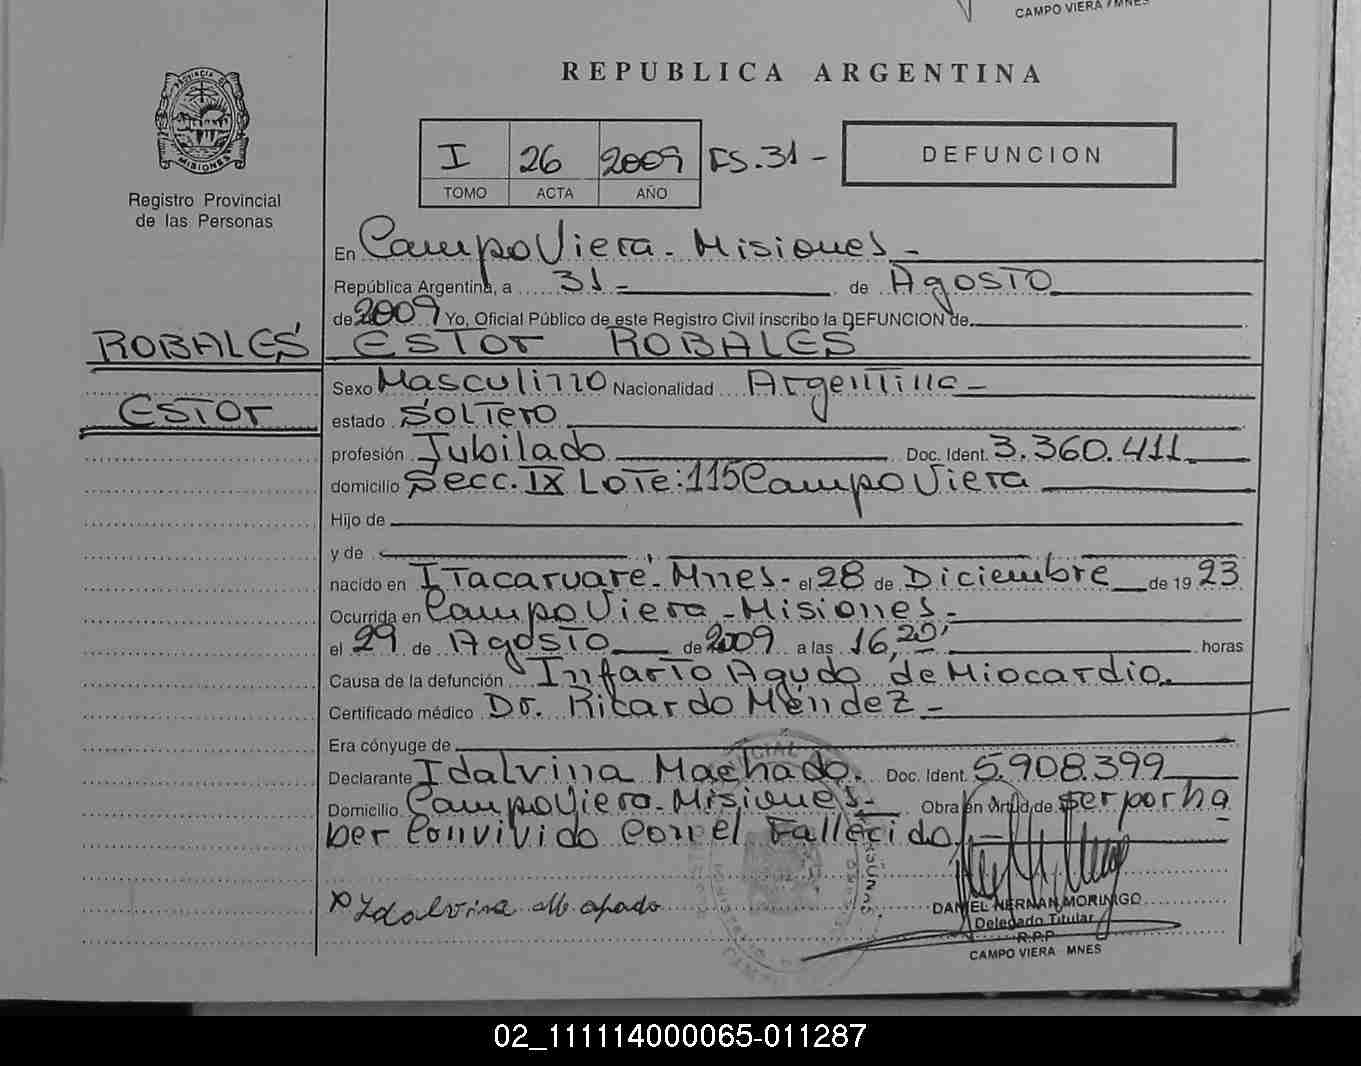 CAMPO VIERA / MNES
REPUBLICA ARGENTINA
PROVINCIA DE
MISIONES
Registro Provincial
de las Personas
I 26 2009 FS.31 -
TOMO ACTA AÑO
DEFUNCION
En Campo Viera - Misiones -
República Argentina, a 31 - de Agosto
de 2009 Yo, Oficial Público de este Registro Civil inscribo la DEFUNCION de
ROBALES ESTOR ROBALES
Sexo Masculino Nacionalidad Argentina -
ESTOR
estado Soltero
profesión Jubilado Doc. Ident. 3.360.411
domicilio Secc. IX Lote: 115 Campo Viera
Hijo de
y de
nacido en Itacaruaré - Mnes - el 28 de Diciembre de 19 23
Ocurrida en Campo Viera - Misiones -
el 29 de Agosto de 2009 a las 16,20' horas
Causa de la defunción Infarto Agudo de Miocardio.
Certificado médico Dr. Ricardo Méndez -
Era cónyuge de
Declarante Idalvina Machado. Doc. Ident. 5.908.399
Domicilio Campo Viera - Misiones - Obra en virtud de Ser por ha
ber Convivido Con el Fallecido
x Idalvina
DANIEL HERNAN MORINIGO
Delegado Titular
R.P.P
CAMPO VIERA MNES
02_111114000065-011287